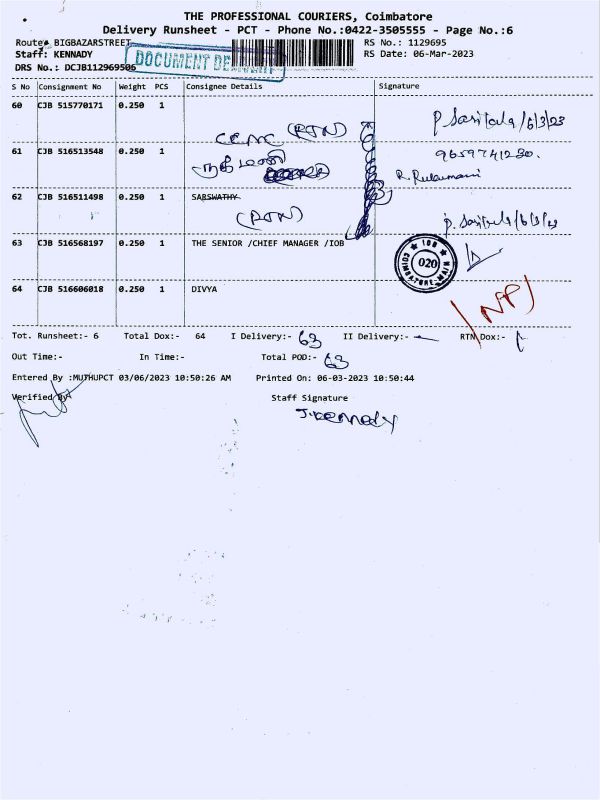 THE PROFESSIONAL COURIERS, Coimbatore
Delivery Runsheet - PCT - Phone No.:0422-3505555 - Page No.:6
Route: BIGBAZARSTREET
RS No.: 1129695
Staff: KENNADY
RS Date: 06-Mar-2023
DRS No.: DCJB112969506
DOCUMENT
S No Consignment No Weight PCS Consignee Details Signature
60 CJB 515770171 0.250 1
(RTN) 6/3/23
61 CJB 516513548 0.250 1
9659741230.
62 CJB 516511498 0.250 1 SARSWATHY
(RTN)
63 CJB 516568197 0.250 1 THE SENIOR /CHIEF MANAGER /IOB
IOB
020
COIMBATORE-MAIN
64 CJB 516606018 0.250 1 DIVYA
/NP/
Tot. Runsheet:- 6 Total Dox:- 64 I Delivery:- 63 II Delivery:- - RTN Dox:- 1
Out Time:- In Time:- Total POD:- 63
Entered By :MUTHUPCT 03/06/2023 10:50:26 AM Printed On: 06-03-2023 10:50:44
Verified By
Staff Signature
J.Kennedy